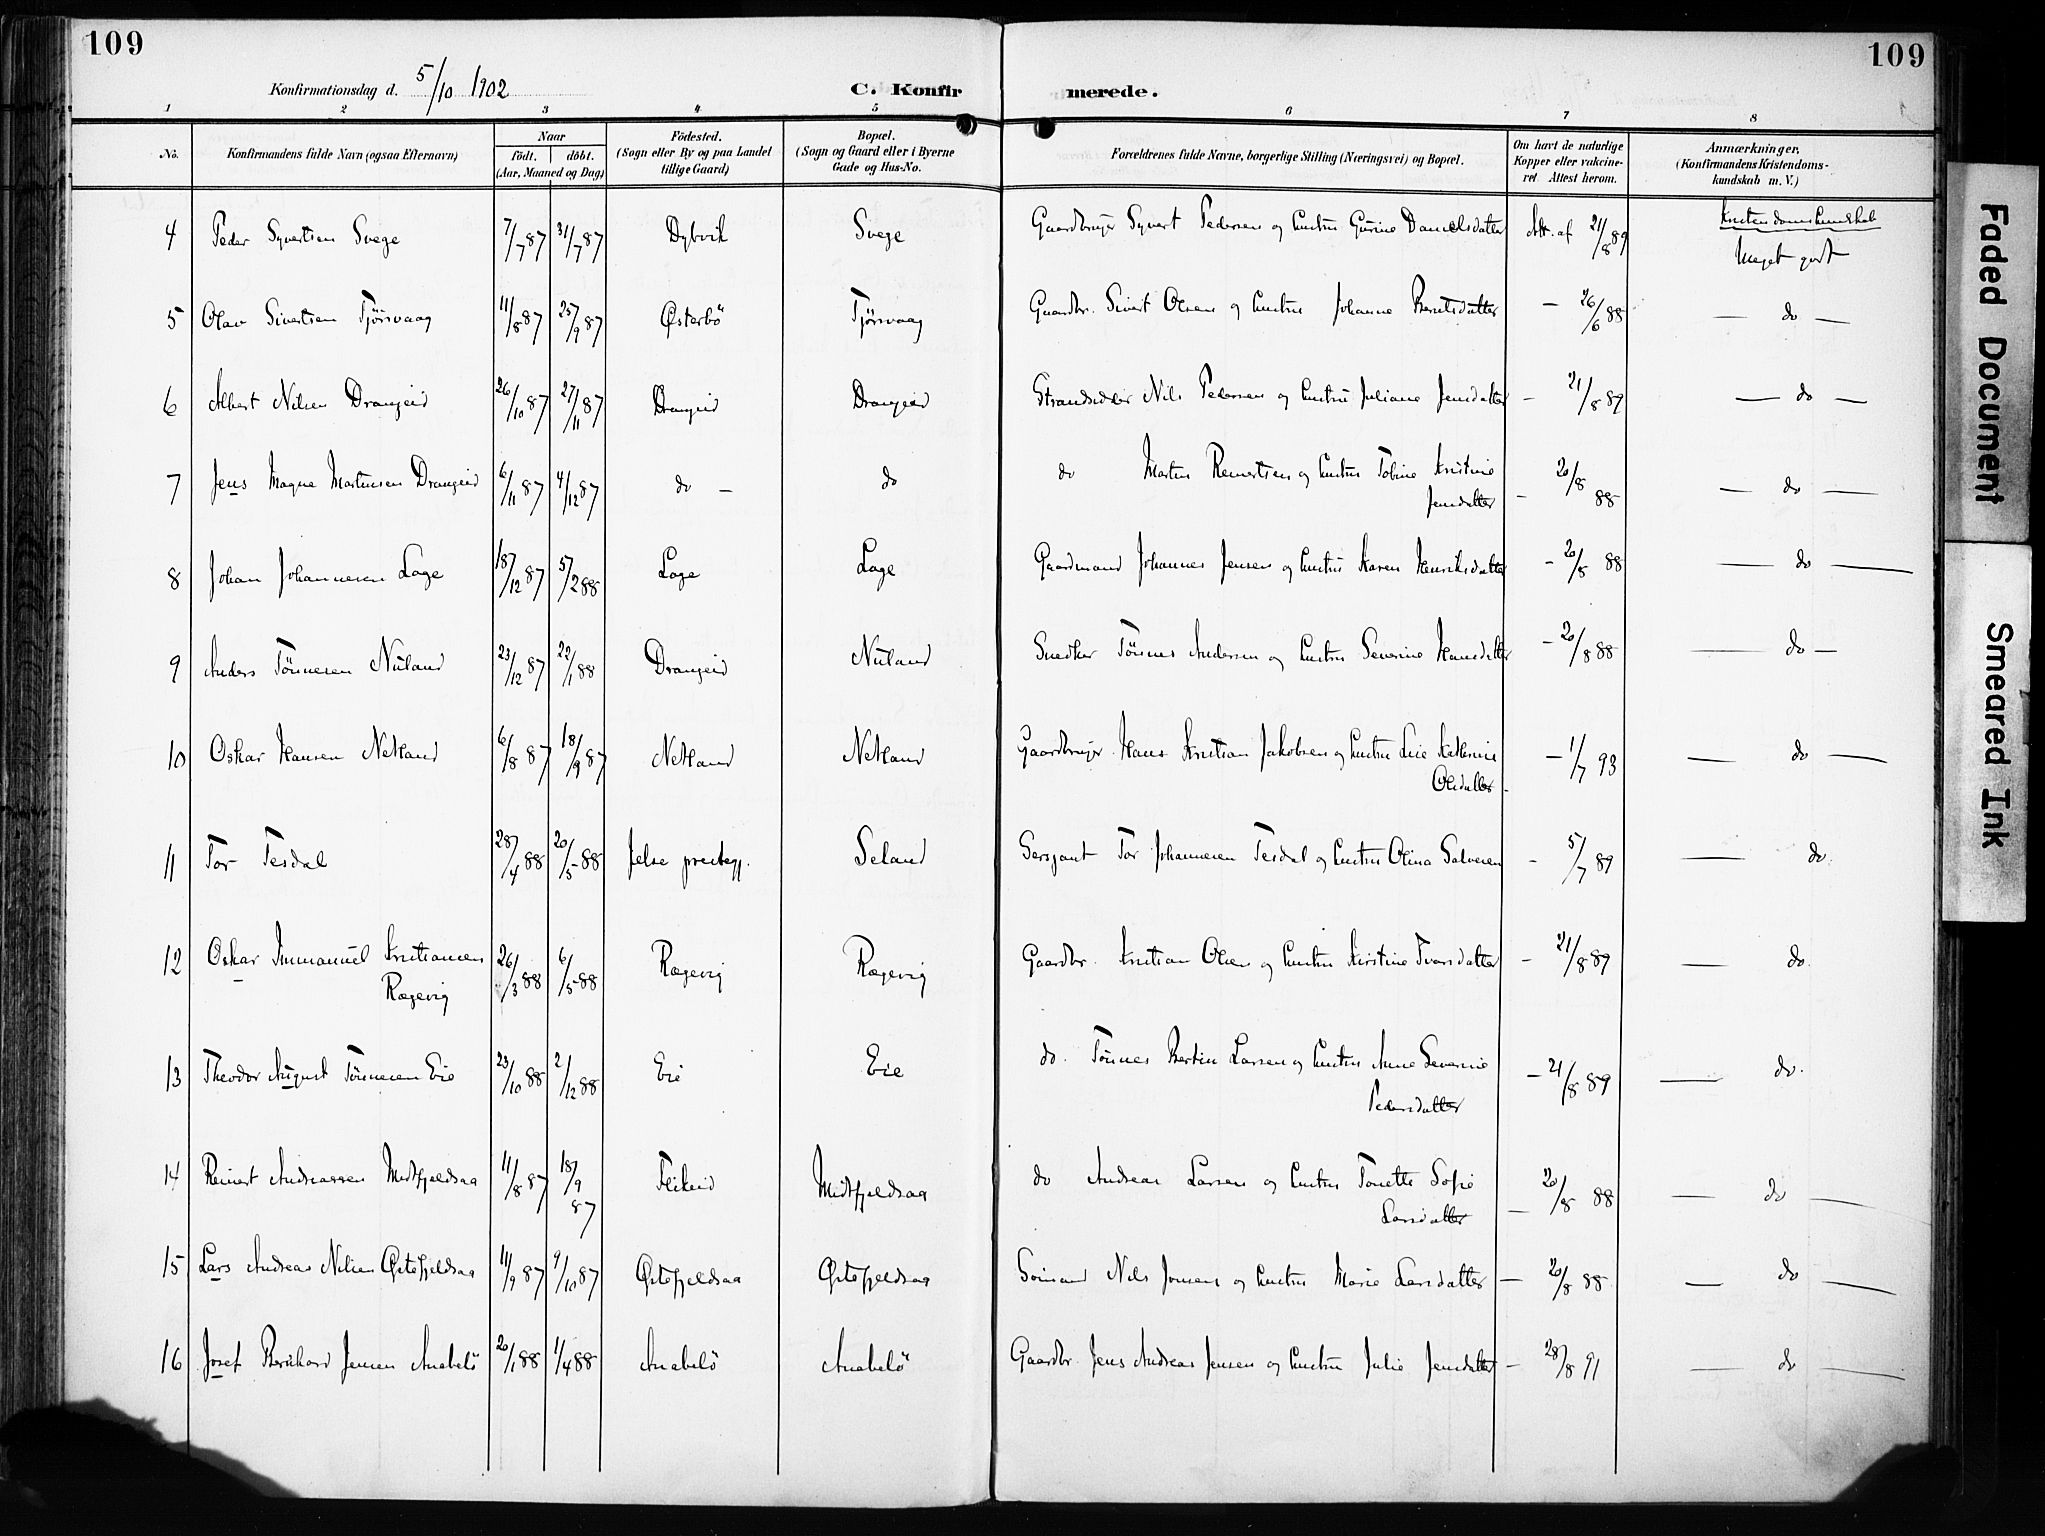 109
109
Konfirmationsdag d. 5/10 1902
C. Konfirmerede.
1 2 3 4 5 6 7 8
No.
Konfirmandens fulde Navn (ogsaa Efternavn)
Naar
födt. döbt.
(Aar, Maaned og Dag)
Födested.
(Sogn eller By og paa Landet
tillige Gaard)
Bopæl.
(Sogn og Gaard eller i Byerne
Gade og Hus-No.
Forældrenes fulde Navne, borgerlige Stilling (Næringsvei) og Bopæl.
Om havt de naturlige
Kopper eller vakcine-
ret Attest herom.
Anmærkninger,
(Konfirmandens Kristendoms-
kundskab m. V.)
Kristendomskundskab
4 Peder Syvertsen Svege 7/7 87 31/7 87 Dybvik Svege Gaardbruger Syvert Pedersen og Hustru Gurine Danielsdatter Att. af 21/8 89 Meget godt
5 Olav Sivertsen Tjörsvaag 11/8 87 25/9 87 Österbö Tjörsvaag Gaardbr. Sivert Olsen og Hustru Johanne Berntsdatter – 26/6 88 — do —
6 Albert Nilsen Drangeid 26/10 87 27/11 87 Drangeid Drangeid Strandsidder Nils Pedersen og Hustru Juliane Jensdatter – 21/8 89 — do —
7 Jens Magne Martinsen Drangeid 6/11 87 4/12 87 do – do do Martin Reinertsen og Hustru Tobine Kristine
Jensdatter – 20/8 88 — do —
8 Johan Johannesen Loge 18/12 87 5/2 88 Loge Loge Gaardmand Johannes Jensen og Hustru Karen Henriksdatter – 20/8 88 — do —
9 Anders Tönnesen Nuland 23/12 87 22/1 88 Drangeid Nuland Snedker Tönnes Andersen og Hustru Severine Hansdatter – 20/8 88 — do —
10 Oskar Hansen Netland 6/8 87 18/9 87 Netland Netland Gaardbruger Hans Kristian Jakobsen og Hustru Lise Kathrine
Olsdatter – 1/7 93 — do —
11 Tor Tesdal 28/4 88 20/5 88 Jelse prestegj. Seland Sersjant Tor Johannesen Tesdal og Hustru Olina Salvesen – 5/7 89 — do
12 Oskar Immanuel Kristiansen
Rægevig 26/3 88 6/5 88 Rægevig Rægevig Gaardbr. Kristian Olsen og Hustru Kirstine Ivarsdatter – 21/8 89 — do
13 Theodor August Tönnesen Eie 23/10 88 2/12 88 Eie Eie do. Tönnes Bertin Larsen og Hustru Anne Severine
Pedersdatter – 21/8 89 — do.
14 Reinert Andreassen Midtfjeldsaa 11/8 87 18/9 87 Flikeid Midtfjeldsaa do Andreas Larsen og Hustru Tonette Sofie
Larsdatter – 20/8 88 — do —
15 Lars Andreas Nilsen Östefjeldsaa 11/9 87 9/10 87 Östefjeldsaa Östefjeldsaa Sömand Nils Jonsen og Hustru Marie Larsdatter – 20/8 88 — do —
16 Josef Bernhard Jensen Anabelö 20/1 88 1/4 88 Anabelö Anabelö Gaardbr. Jens Andreas Jensen og Hustru Julie Jensdatter – 28/8 91 — do —
Faded Document
Smeared Ink